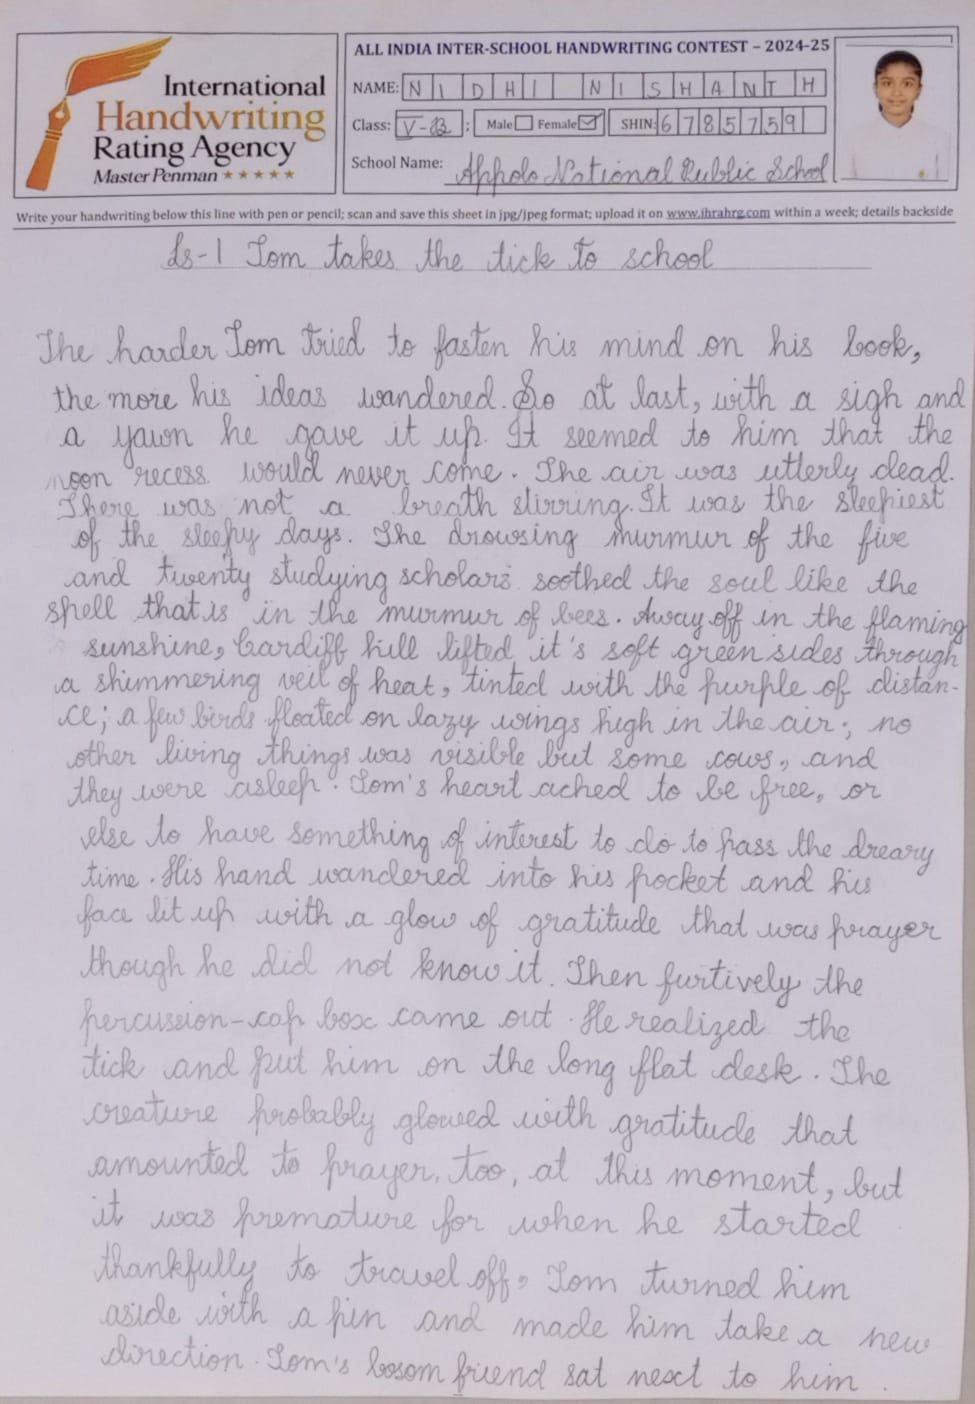 International
Handwriting
Rating Agency
Master Penman ★★★★★
ALL INDIA INTER-SCHOOL HANDWRITING CONTEST – 2024-25
NAME: NIDHI NISHANTH
Class: V-B : Male Female SHIN: 6785759
School Name: Appolo National Public School
Write your handwriting below this line with pen or pencil; scan and save this sheet in jpg/jpeg format; upload it on www.ihrahrg.com within a week; details backside
Ls-1 Tom takes the tick to school
The harder Tom tried to fasten his mind on his book,
the more his ideas wandered. So at last, with a sigh and
a yawn he gave it up. It seemed to him that the
noon recess would never come. The air was utterly dead.
There was not a breath stirring. It was the sleepiest
of the sleepy days. The drowsing murmur of the five
and twenty studying scholars soothed the soul like the
spell that is in the murmur of bees. Away off in the flaming
sunshine, Cardiff hill lifted it's soft green sides through
a shimmering veil of heat, tinted with the purple of distan-
ce; a few birds floated on lazy wings high in the air; no
other living things was visible but some cows, and
they were asleep. Tom's heart ached to be free, or
else to have something of interest to do to pass the dreary
time. His hand wandered into his pocket and his
face lit up with a glow of gratitude that was prayer
though he did not know it. Then furtively the
percussion-cap box came out. He realized the
tick and put him on the long flat desk. The
creature probably glowed with gratitude that
amounted to prayer, too, at this moment, but
it was premature for when he started
thankfully to travel off, Tom turned him
aside with a pin and made him take a new
direction. Tom's bosom friend sat next to him.